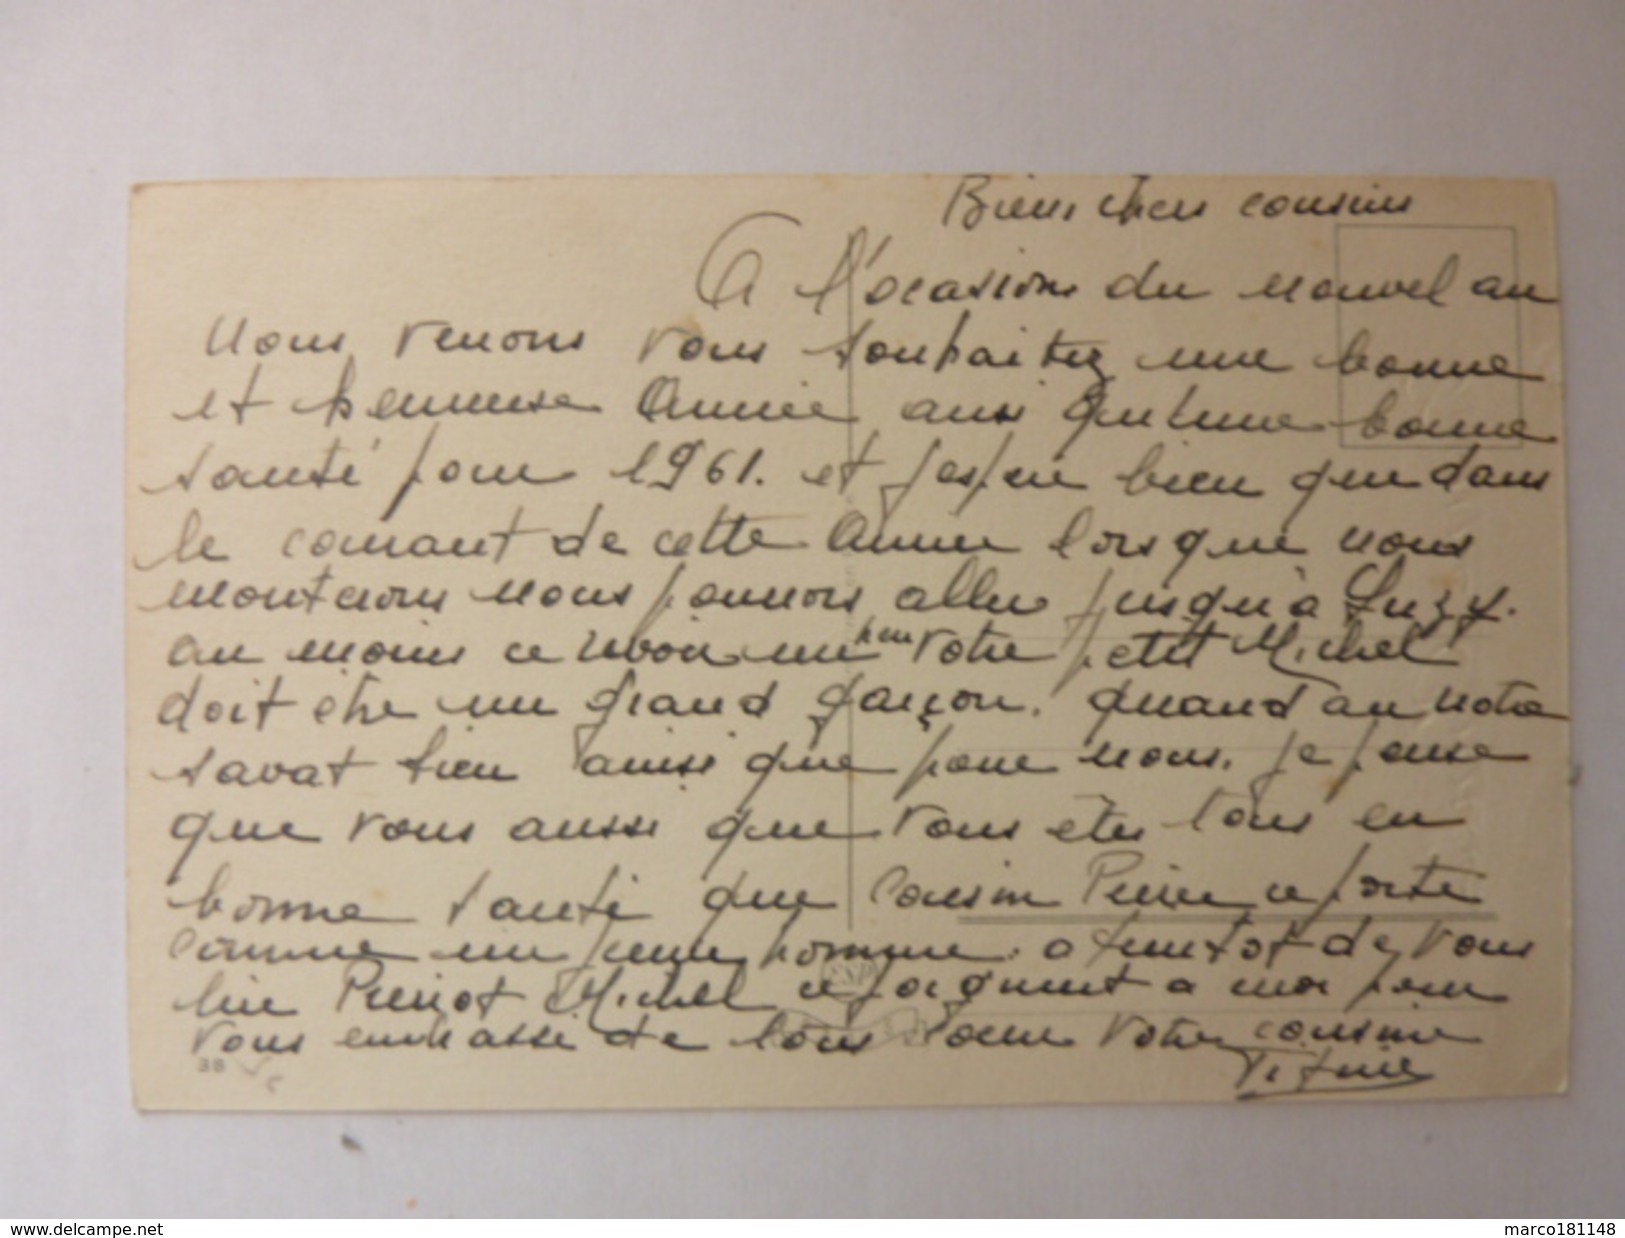 Biens chers cousins
A l'ocasions du nouvel an
nous venons vous souhaitez une bonne
et heureuse Année ausi qu'une bonne
santé pour 1961. et jespere bien que dans
le courant de cette Année lorsque nous
monterons nous pourrons aller jusqu'à Luzy.
au moins ce revoir une heu votre petit Michel
doit être un grand garçon. quand au notre
savat bien ainsi que pour nous. je panse
que vous aussi que vous êtes tous en
bonne santé que Cousin Pierre ce porte
comme un jeune homme. a bientot de vous
lire Pierrot Michel ce joignent a moi pour
vous embrassé de tous coeur votre cousine
38
www.delcampe.net
marco181148